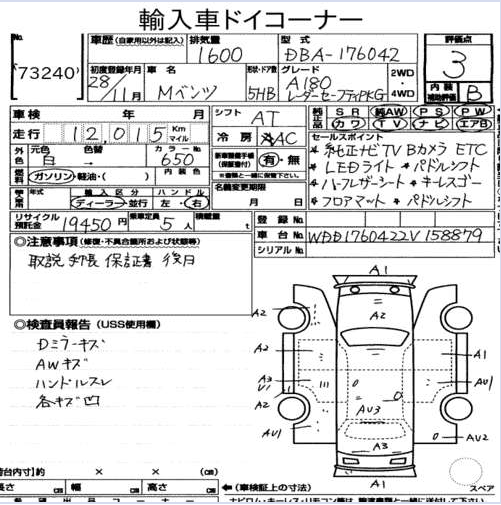 輸入車ドイコーナー
No.
73240
車歴 (自家用以外は記入)
排気量
1600
型式
DBA-176042
評価点
3
初度登録年月
28/11月
車名
Mベンツ
形状・ドア数
5HB
グレード
A180
レーダーセーフティPKG
2WD
・
4WD
内装
補助評価
B
車検 年 月
シフト AT
純正品 SR 純AW PS PW
カワ TV ナビ エアB
走行 12,015 Km マイル
冷房 AC
セールスポイント
* 純正ナビTV Bカメラ ETC
* LEDライト * パドルシフト
* ハーフレザーシート * キーレスゴー
* フロアマット * パドルシフト
外色
元色 色替 カラーNo.
白 → 650
新車整備手帳
(保証書付)
有・無
燃料
ガソリン・軽油・( )
内装色
年式 輸入区分 ハンドル
ディーラー・並行 左・右
名義変更期限
月 日
リサイクル預託金 19450円
乗車定員 5人
積載量 t
登録No.
車台No. WDD1760422V158879
シリアルNo.
◎注意事項 (修復・不具合箇所および状態等)
取説 手帳 保証書 後日
◎検査員報告 (USS使用欄)
Dミラーキズ
AWキズ
ハンドルスレ
各キズ凹
A1
A2
A2
A2
A1
A3
V1
AU1
A2
AU3
AU1
A3
U2
A1
荷台内寸】約 × × (cm)
長さ cm 幅 cm 高さ cm
←(車検証上の寸法)
スペア